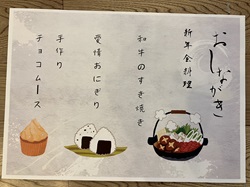 おしながき
新年会料理
和牛のすき焼き
愛情おにぎり
手作り
チョコムース